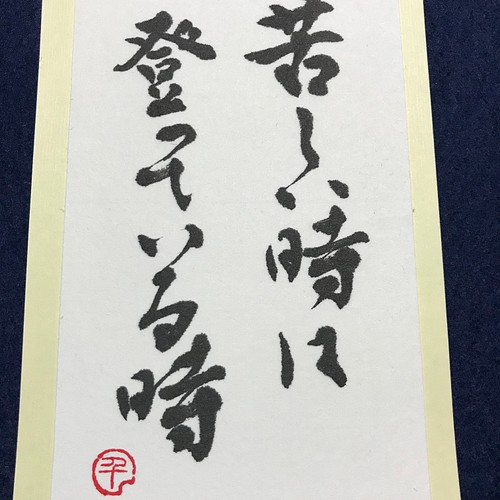 苦しい時は
登っている時